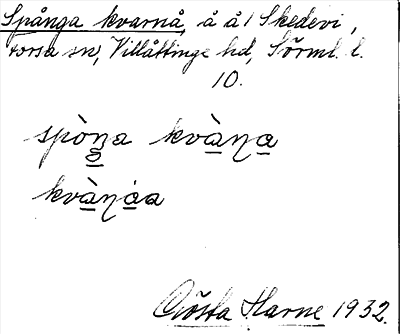 Spånga kvarnå, å å / Skedevi,
torsa sn, Villåttinge hd, Sörml. l.
10.
spòŋa kvàna
kvàṇáa
Gösta Harne 1932.